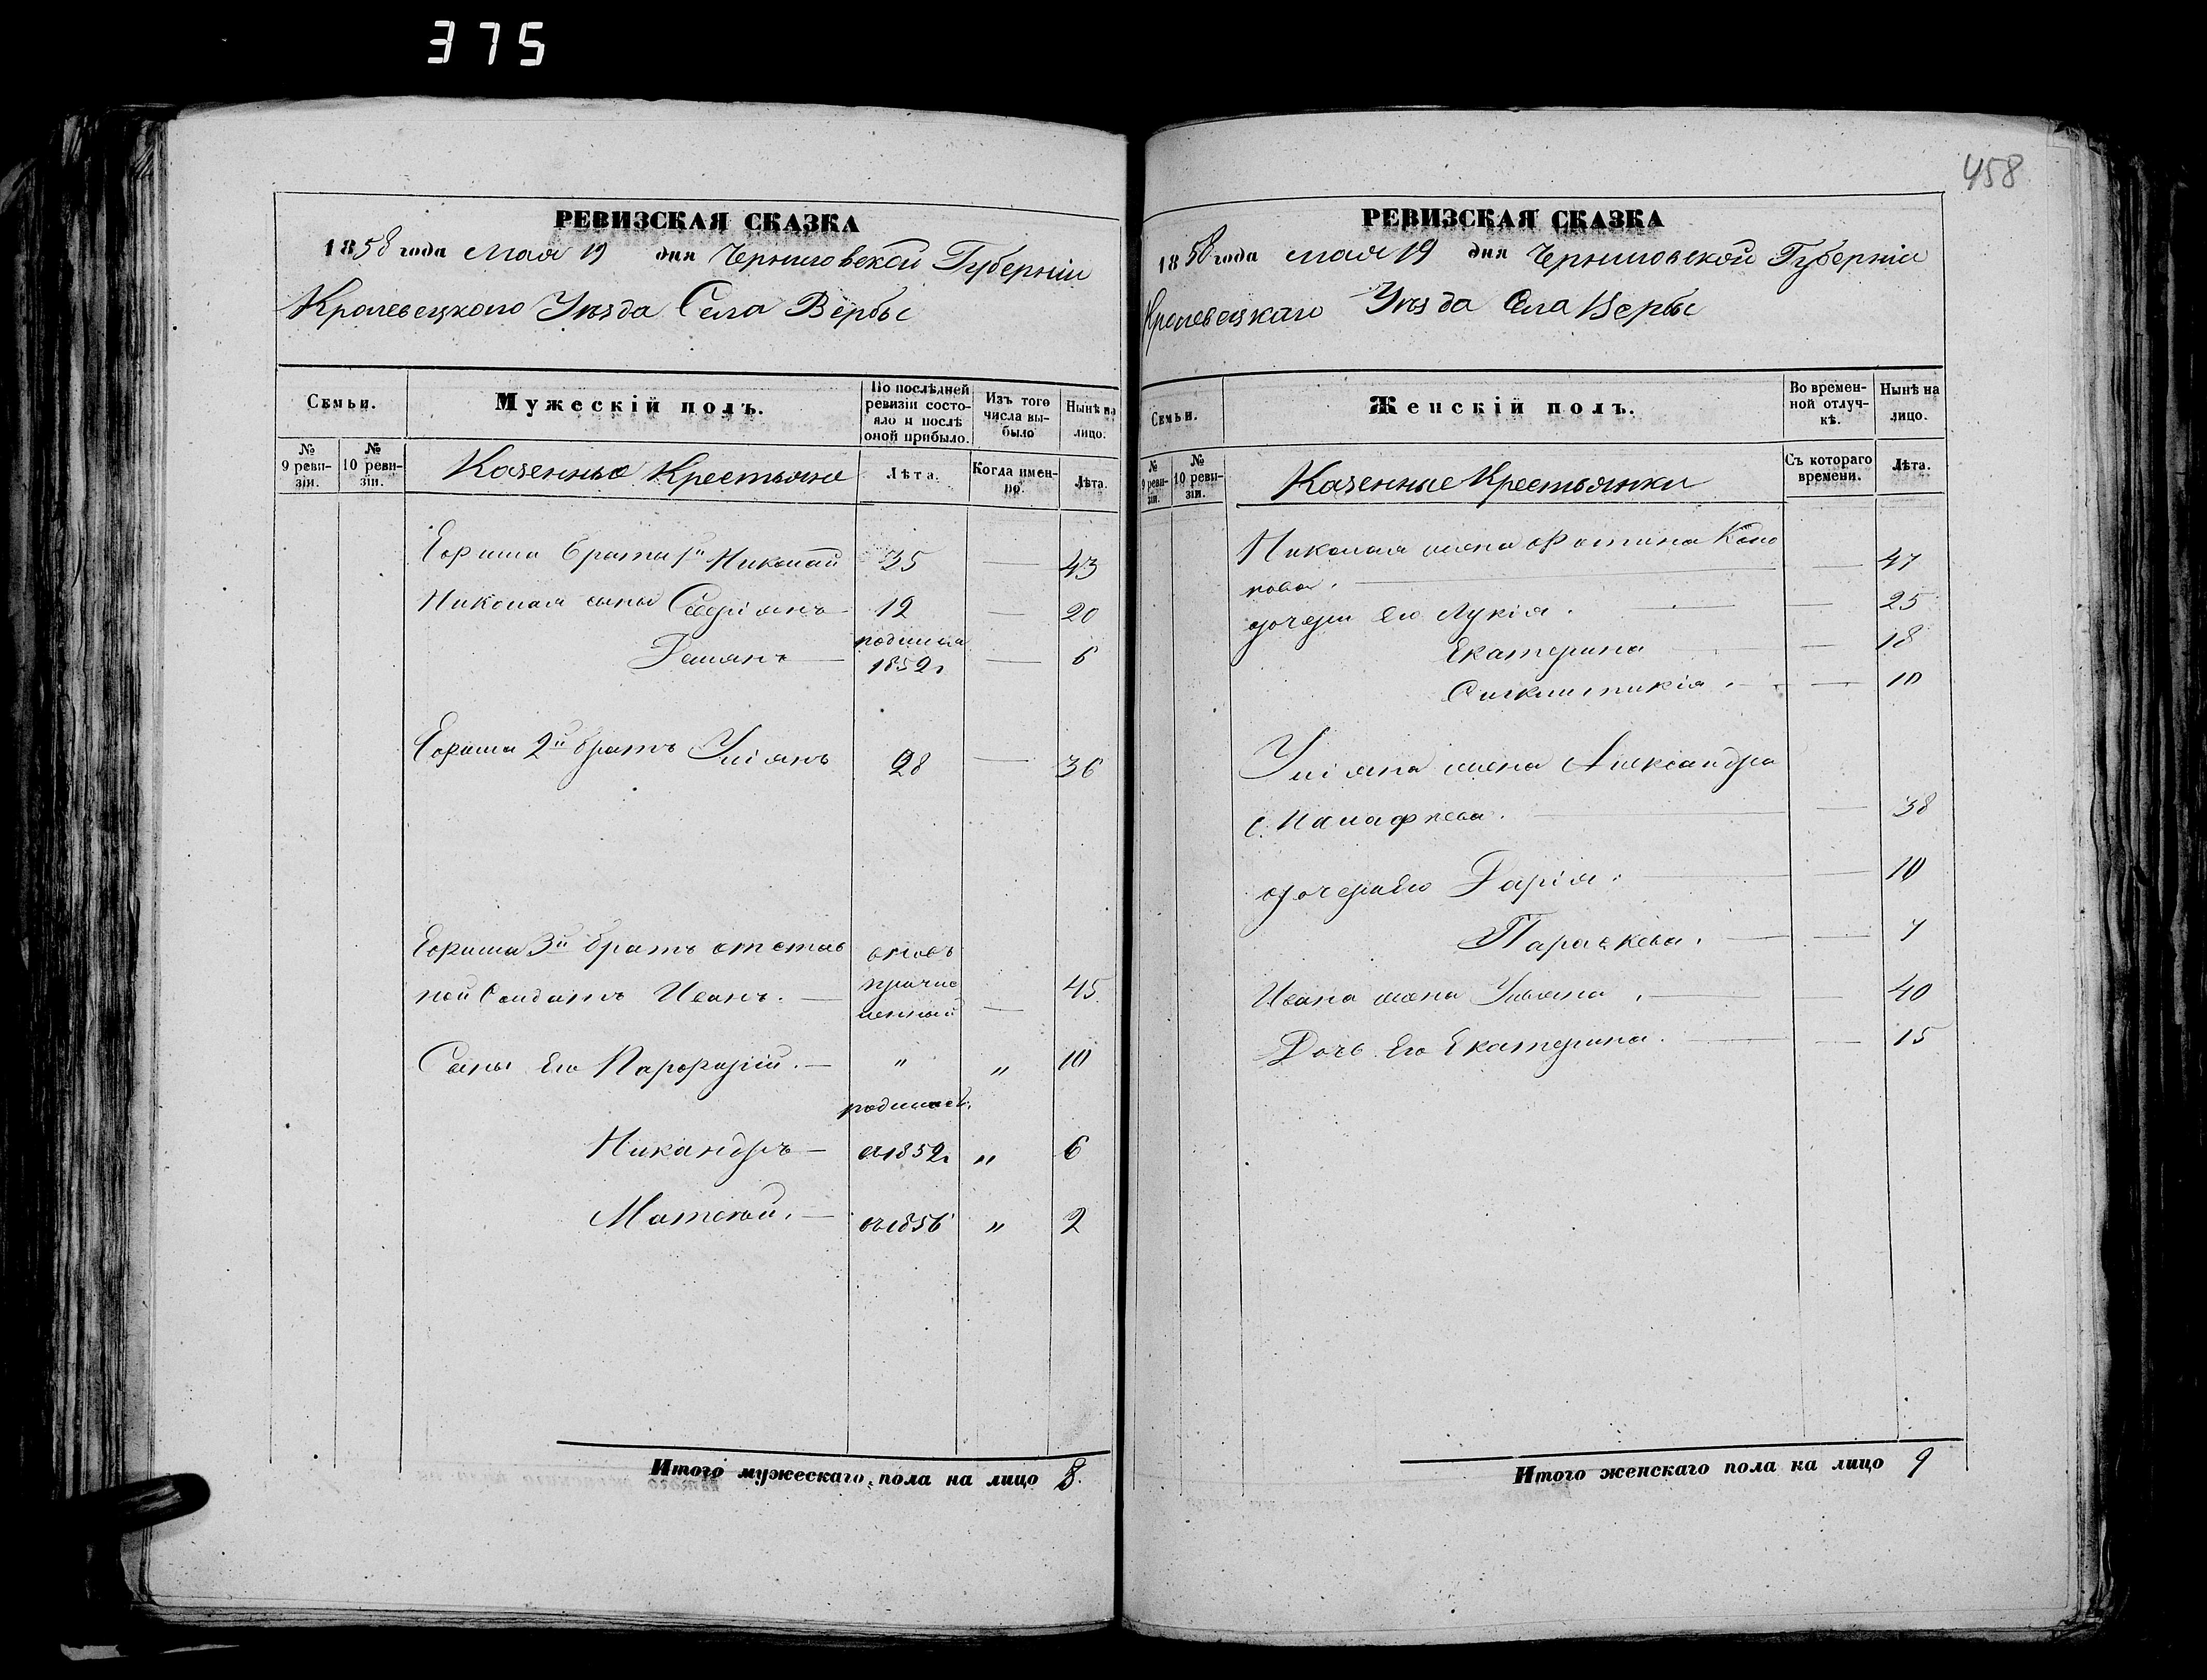 375
РЕВИЗСКАЯ СКАЗКА
1858 года Мая 19 дня Черниговской Губерніи
Кролевецкого Уѣзда Села Вербы
Семьи.
Мужескій полъ.
По послѣдней ревизіи состояло и послѣ оной прибыло.
Изъ того числа выбыло
Нынѣ на лицо.
№ 9 ревизіи.
№ 10 ревизіи.
Казенные Крестьяне
Лѣта.
Когда именно.
Лѣта.
братья 1й Николай 35 — 43
Николая сыны 12 — 20
Демянъ — родился 1852г — 6
2й братъ Уліянъ 28 — 36
3й братъ отстав
ной Солдатъ Иванъ. — вновь причис ленный — 45.
Сыны Его Парфирій. — " " 10
Никандръ — родился въ 1852г " 6
Матвѣй. — въ 1856 " 2
Итого мужескаго пола на лицо 8.
458
РЕВИЗСКАЯ СКАЗКА
1858 года мая 19 дня Черниговской Губерніи
Кролевецкаго Уѣзда Села Вербы
Семьи.
Женскій полъ.
Во временной отлучкѣ.
Нынѣ на лицо.
№ 9 ревизіи.
№ 10 ревизіи.
Казенные Крестьянки
Съ котораго времени.
Лѣта.
Николая жена Фотина Коно
нова. — — 47
дочери Его Лукія. — — 25
Екатерина — 18
— 10
Уліяна жена Александра
— — 38
дочери Его Дарія. — — 10
Параскева. — — 7
Ивана жена Ульяна. — — 40
Дочь Его Екатерина. — — 15
Итого женскаго пола на лицо 9